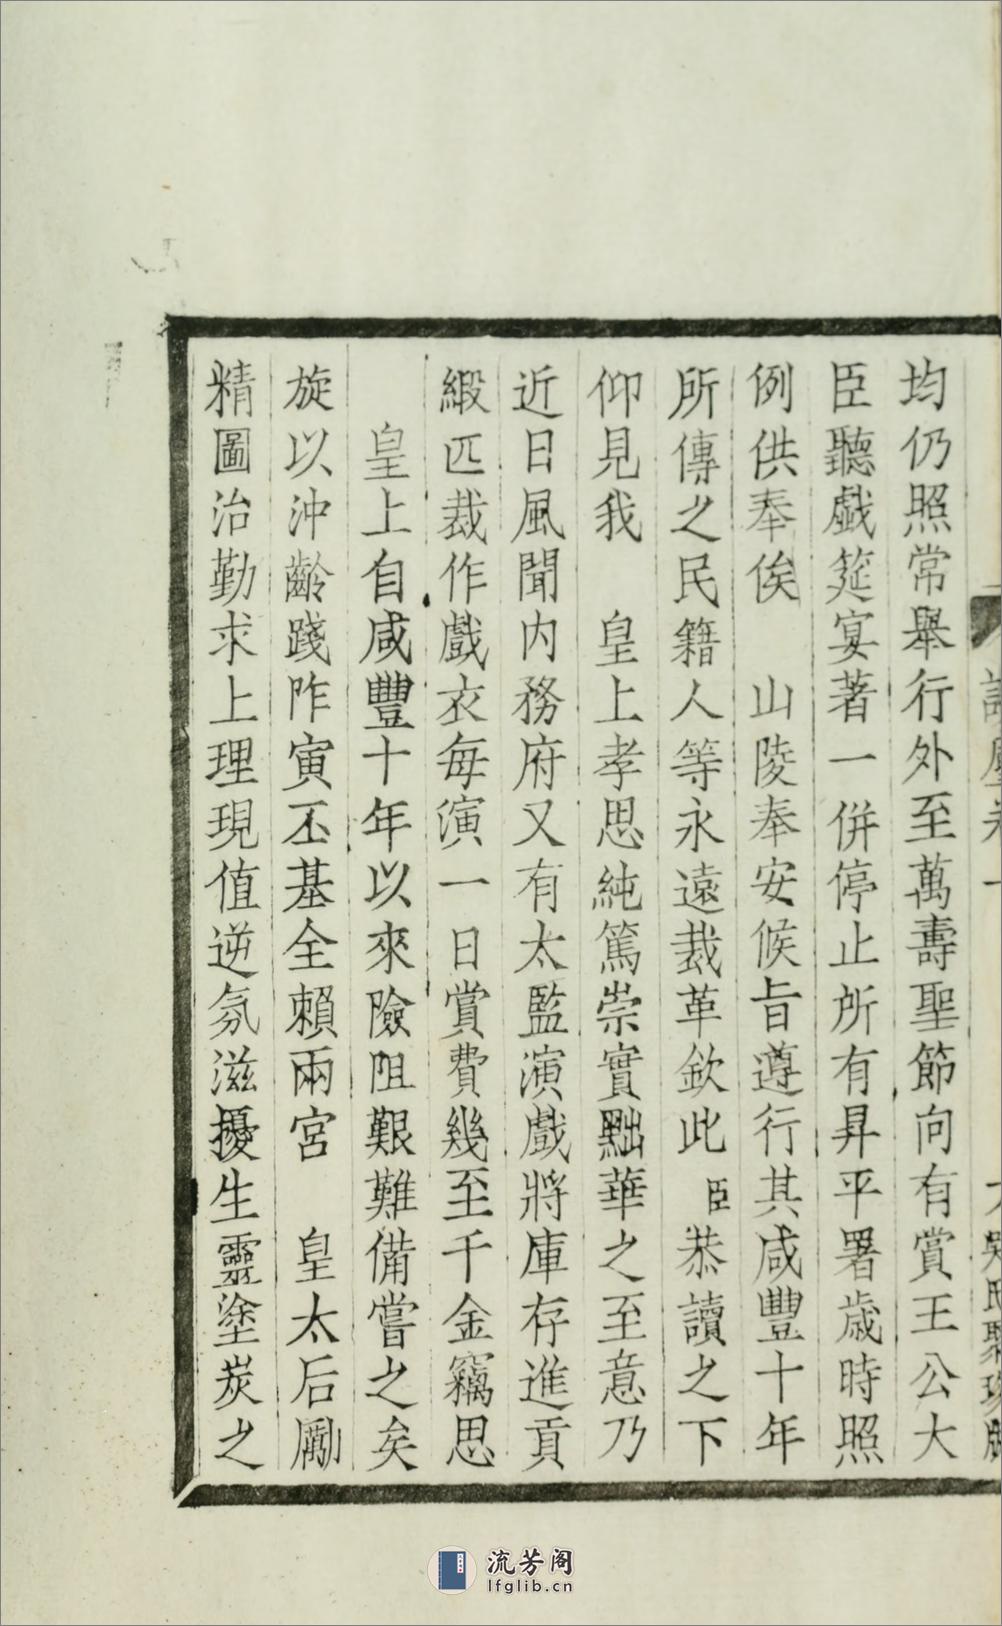 均仍照常舉行外至萬壽聖節向有賞王公大
臣聽戲筵宴著一併停止所有昇平署歲時照
例供奉俟　山陵奉安候旨遵行其咸豐十年
所傳之民籍人等永遠裁革欽此　臣恭讀之下
仰見我　皇上孝思純篤崇實黜華之至意乃
近日風聞内務府又有太監演戲將庫存進貢
緞匹裁作戲衣每演一日賞費幾至千金竊思
皇上自咸豐十年以來險阻艱難備嘗之矣
旋以沖齡踐阼寅丕基全賴兩宮　皇太后勵
精圖治勤求上理現值逆氛滋擾生靈塗炭之
流芳阁
lfglib.cn